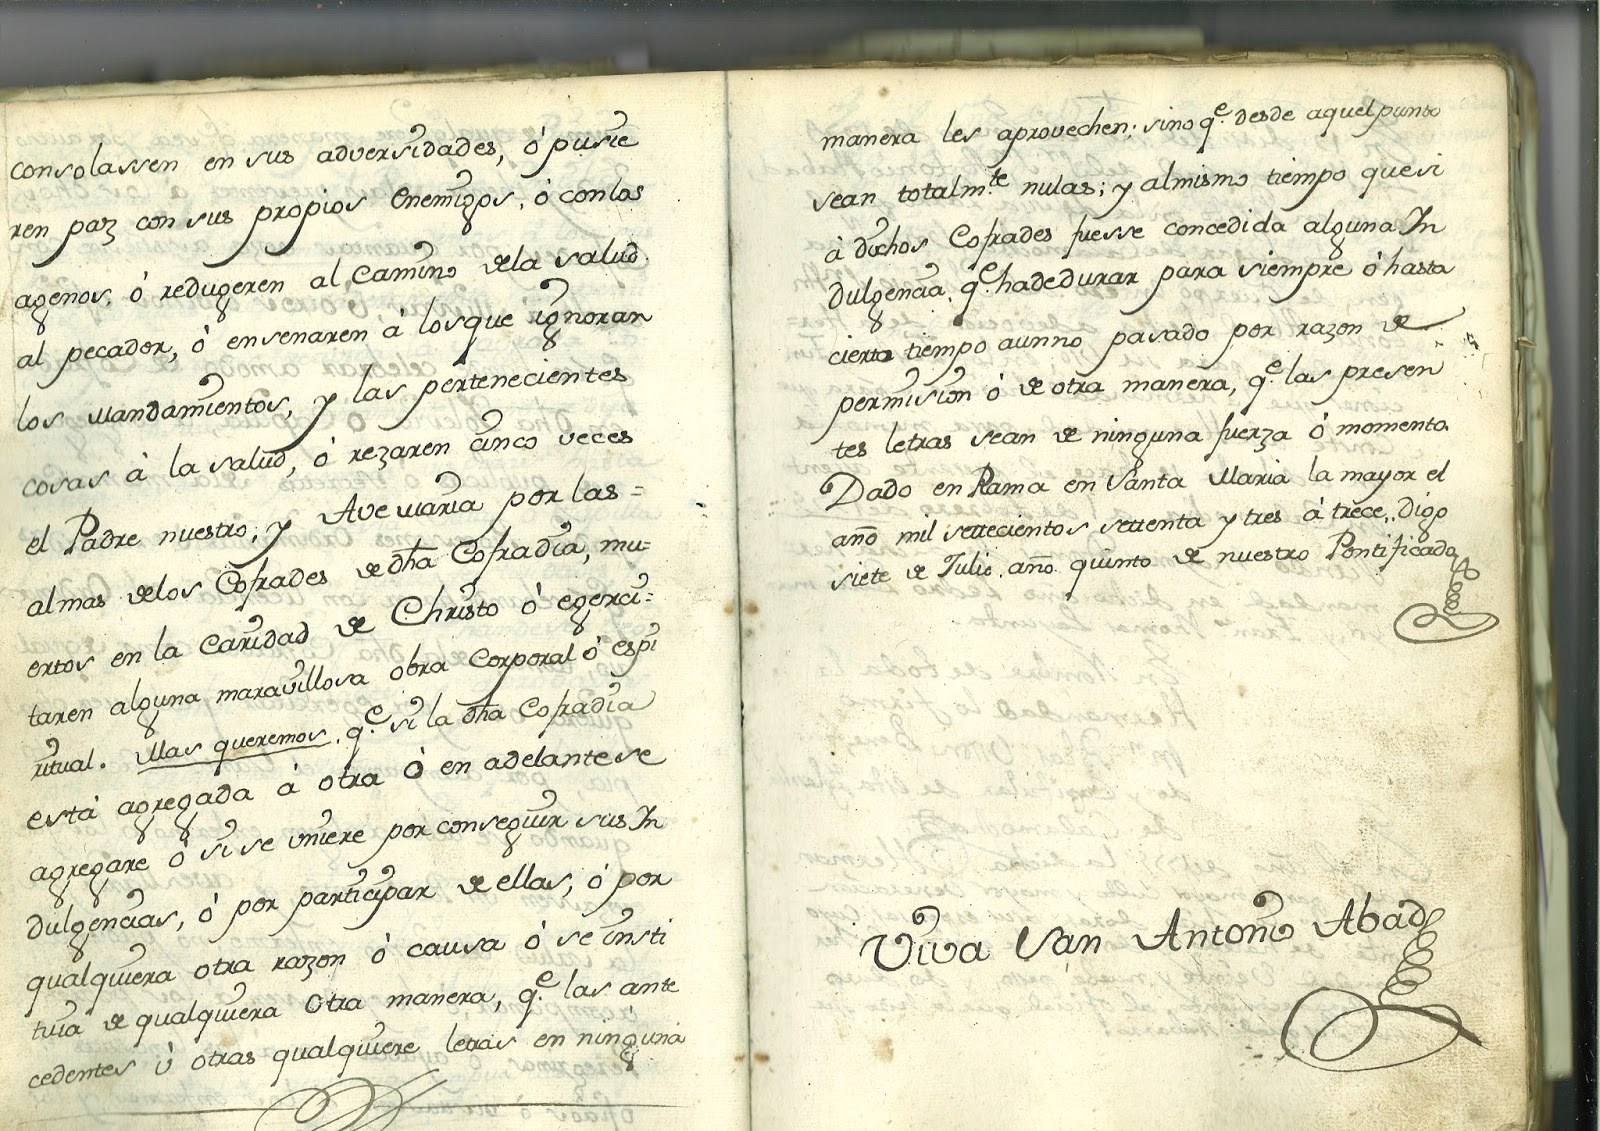 consolassen en sus adversidades, ó pusie
ren paz con sus propios Enemigos, ó con los
agenos, ó redugeren al Camino dela salud
al pecador, ó ensenaren á losque ignoran
los Mandamientos, y las pertenecientes
cosas á la salud, ó rezaren cinco veces
el Padre nuestro, y Ave Maria por las=
almas delos Cofrades de dha Cofradia, mu=
ertos en la Caridad de Christo ó egerci=
taren alguna maravillosa obra Corporal ó espi
ritual. Mas queremos, qe. si la dha Cofradia
está agregada á otra ó en adelante se
agregare ó si se uniere por conseguir sus In
dulgencias, ó por participar de ellas, ó por
qualquiera otra razon ó causa ó se insti
tuia de qualquiera otra manera, qe. las ante
cedentes ú otras qualquiere letras en ninguna
manera les aprovechen; sino qe. desde aquel punto
sean totalmte. nulas; y almismo tiempo que si
á dichos Cofrades fuesse concedida alguna In
dulgencia, qe. hadedurar para siempre ó hasta
cierto tiempo aunno pasado por razon de
permision ó de otra manera, qe. las presen
tes letras sean de ninguna fuerza ó momento.
Dado en Rama en Santa Maria la mayor el
año mil settecientos settenta y tres á trece, digo
siete de Julio, año quinto de nuestro Pontificado
Viva San Antonio Abad